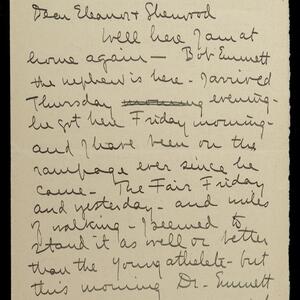 Dear Eleanor & Sherwood
Well here I am at
home again — Bob Emmett
the nephew is here - I arrived
Thursday evening -
he got here Friday morning -
and I have been on the
rampage ever since he
came - The Fair Friday
and yesterday - and miles
of walking - I seemed to
stand it as well or better
than the young athelate - but
this morning Dr - Emmett